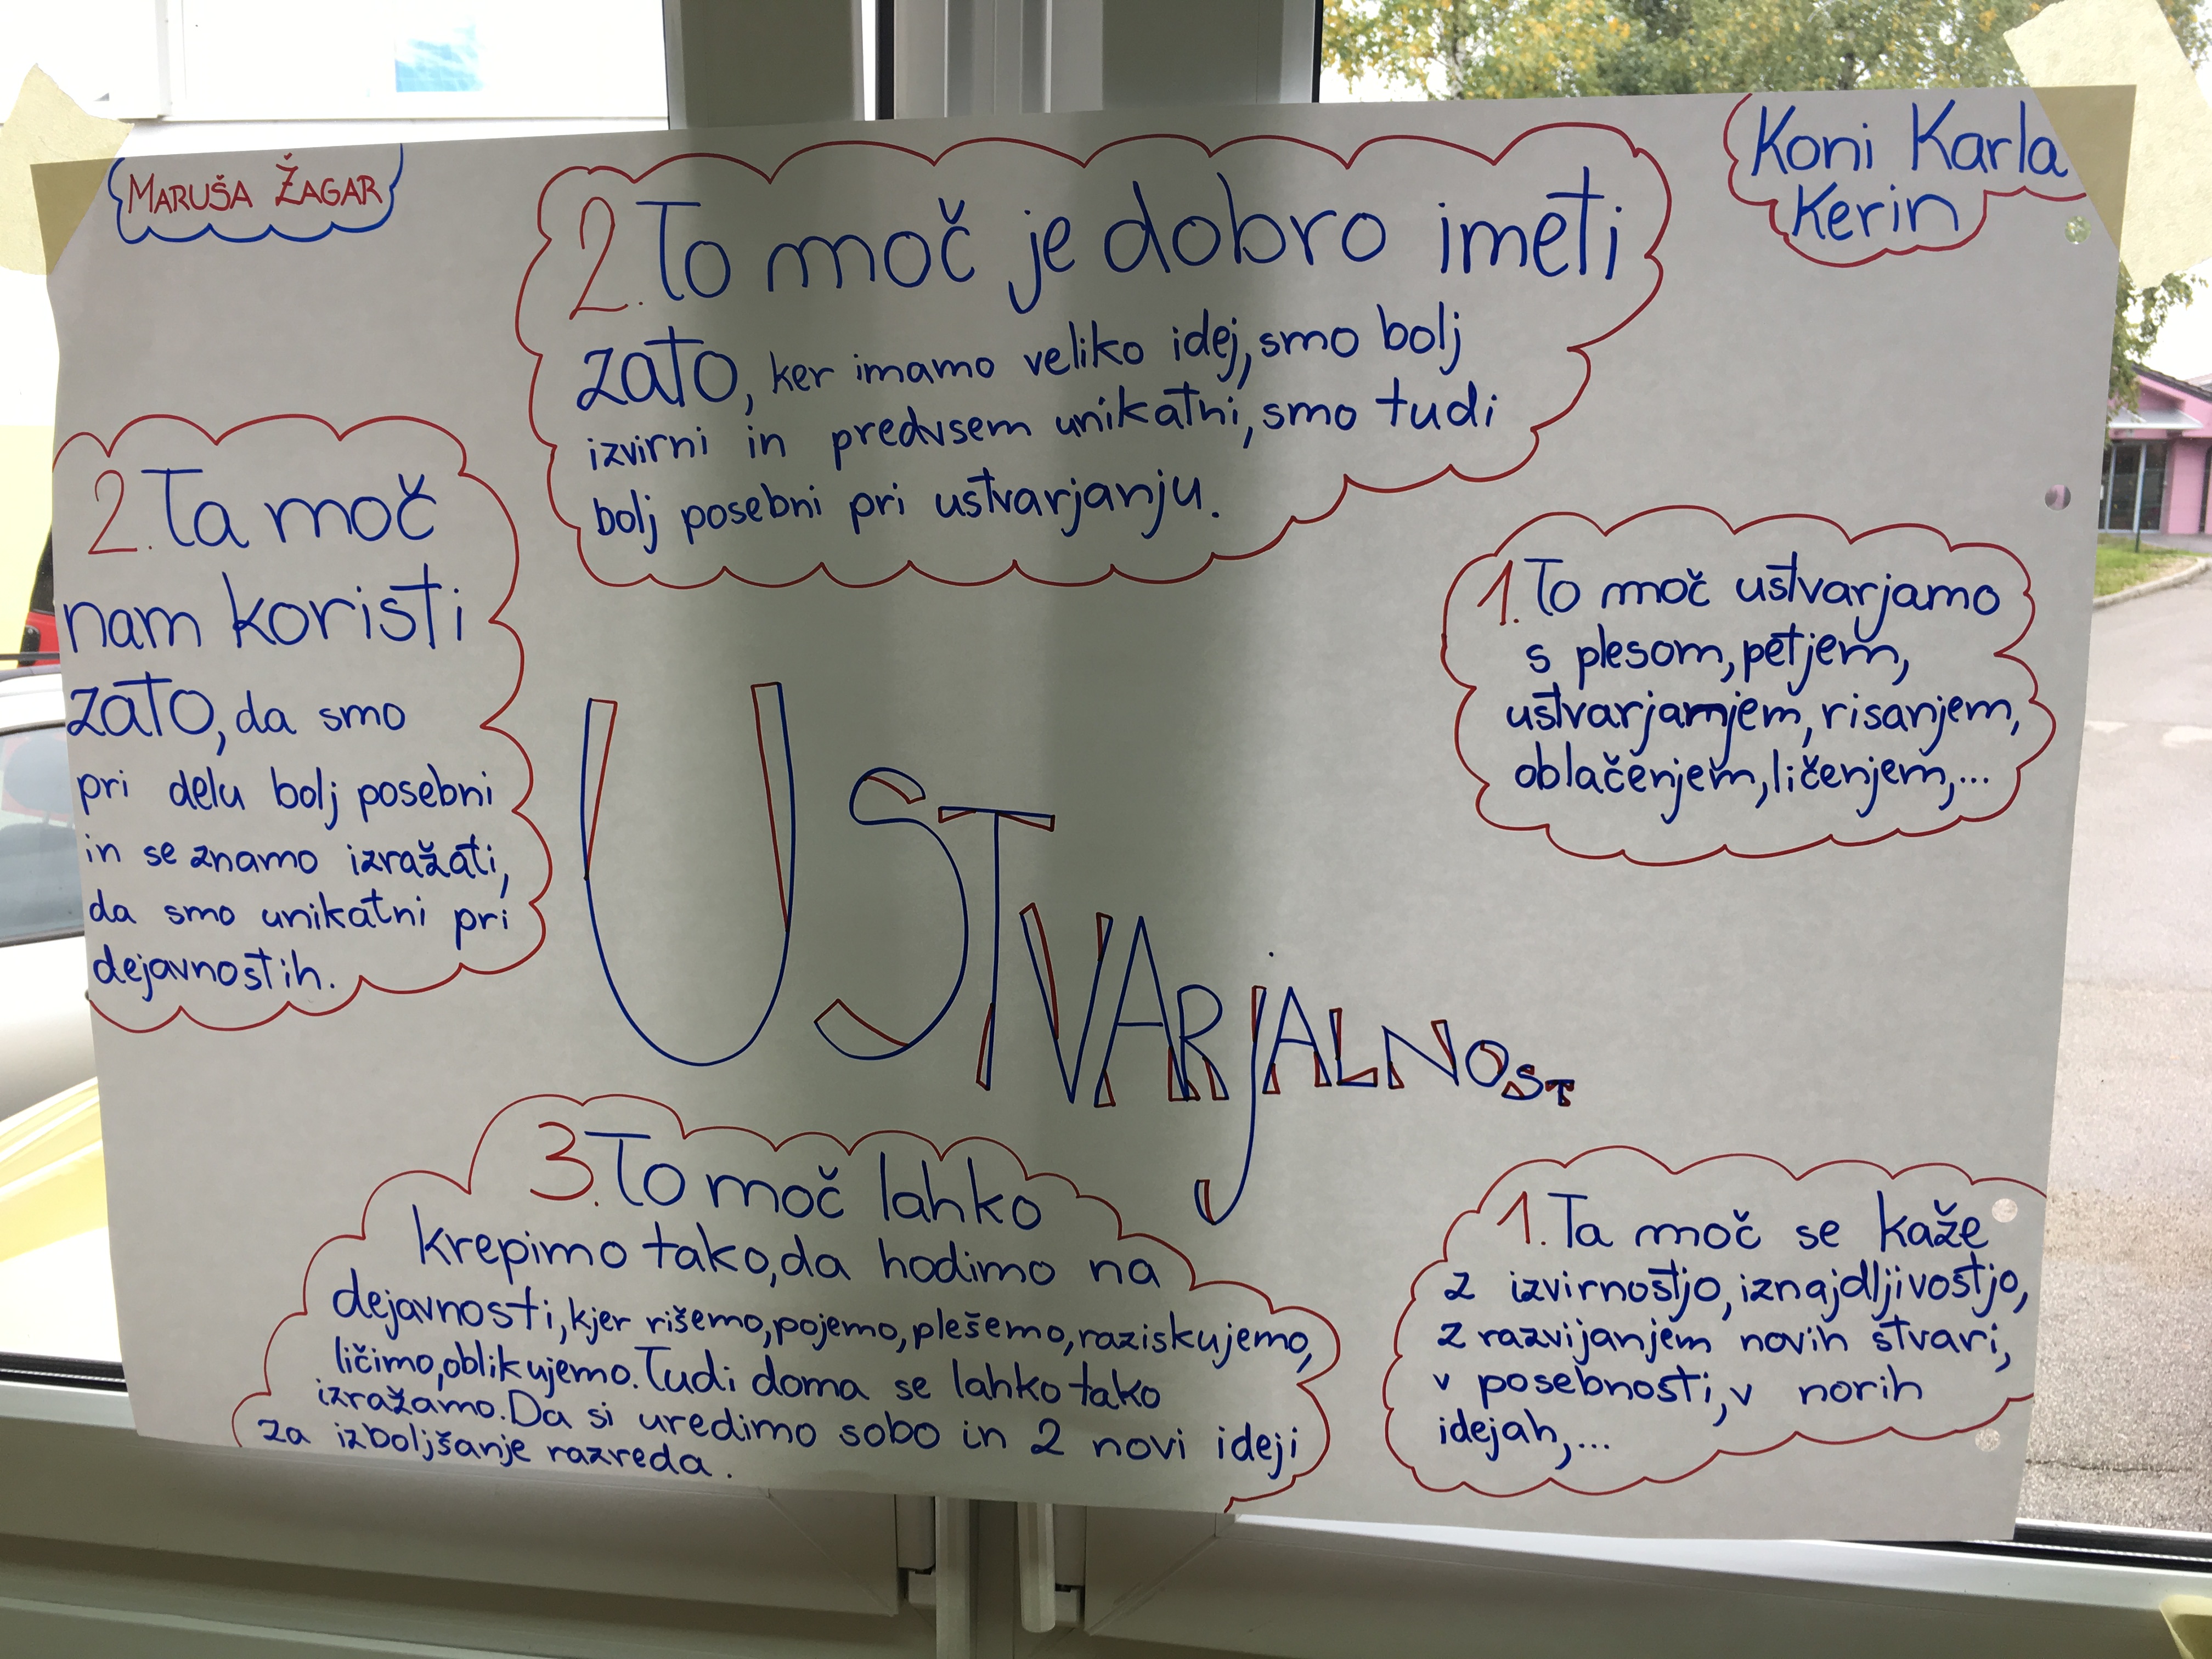 MARUŠA ŽAGAR
Koni Karla
Kerin
2. To moč je dobro imeti
zato, ker imamo veliko idej, smo bolj
izvirni in predvsem unikatni, smo tudi
bolj posebni pri ustvarjanju.
2. Ta moč
nam koristi
zato, da smo
pri delu bolj posebni
in se znamo izražati,
da smo unikatni pri
dejavnostih.
1. To moč ustvarjamo
s plesom, petjem,
ustvarjanjem, risanjem,
oblačenjem, ličenjem,...
USTVARJALNOST
3. To moč lahko
krepimo tako, da hodimo na
dejavnosti, kjer rišemo, pojemo, plešemo, raziskujemo,
ličimo, oblikujemo. Tudi doma se lahko tako
izražamo. Da si uredimo sobo in 2 novi ideji
za izboljšanje razreda.
1. Ta moč se kaže
z izvirnostjo, iznajdljivostjo,
z razvijanjem novih stvari,
v posebnosti, v norih
idejah,...